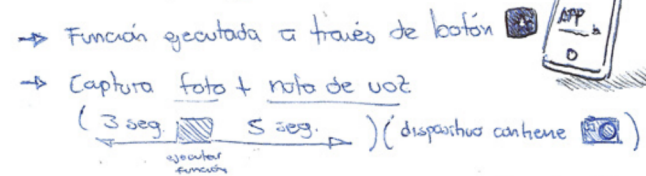 → Función ejecutada a través de botón
APP
→ Captura foto + nota de voz
( 3 seg. 5 seg. ) ( dispositivo contiene )
ejecutar
función